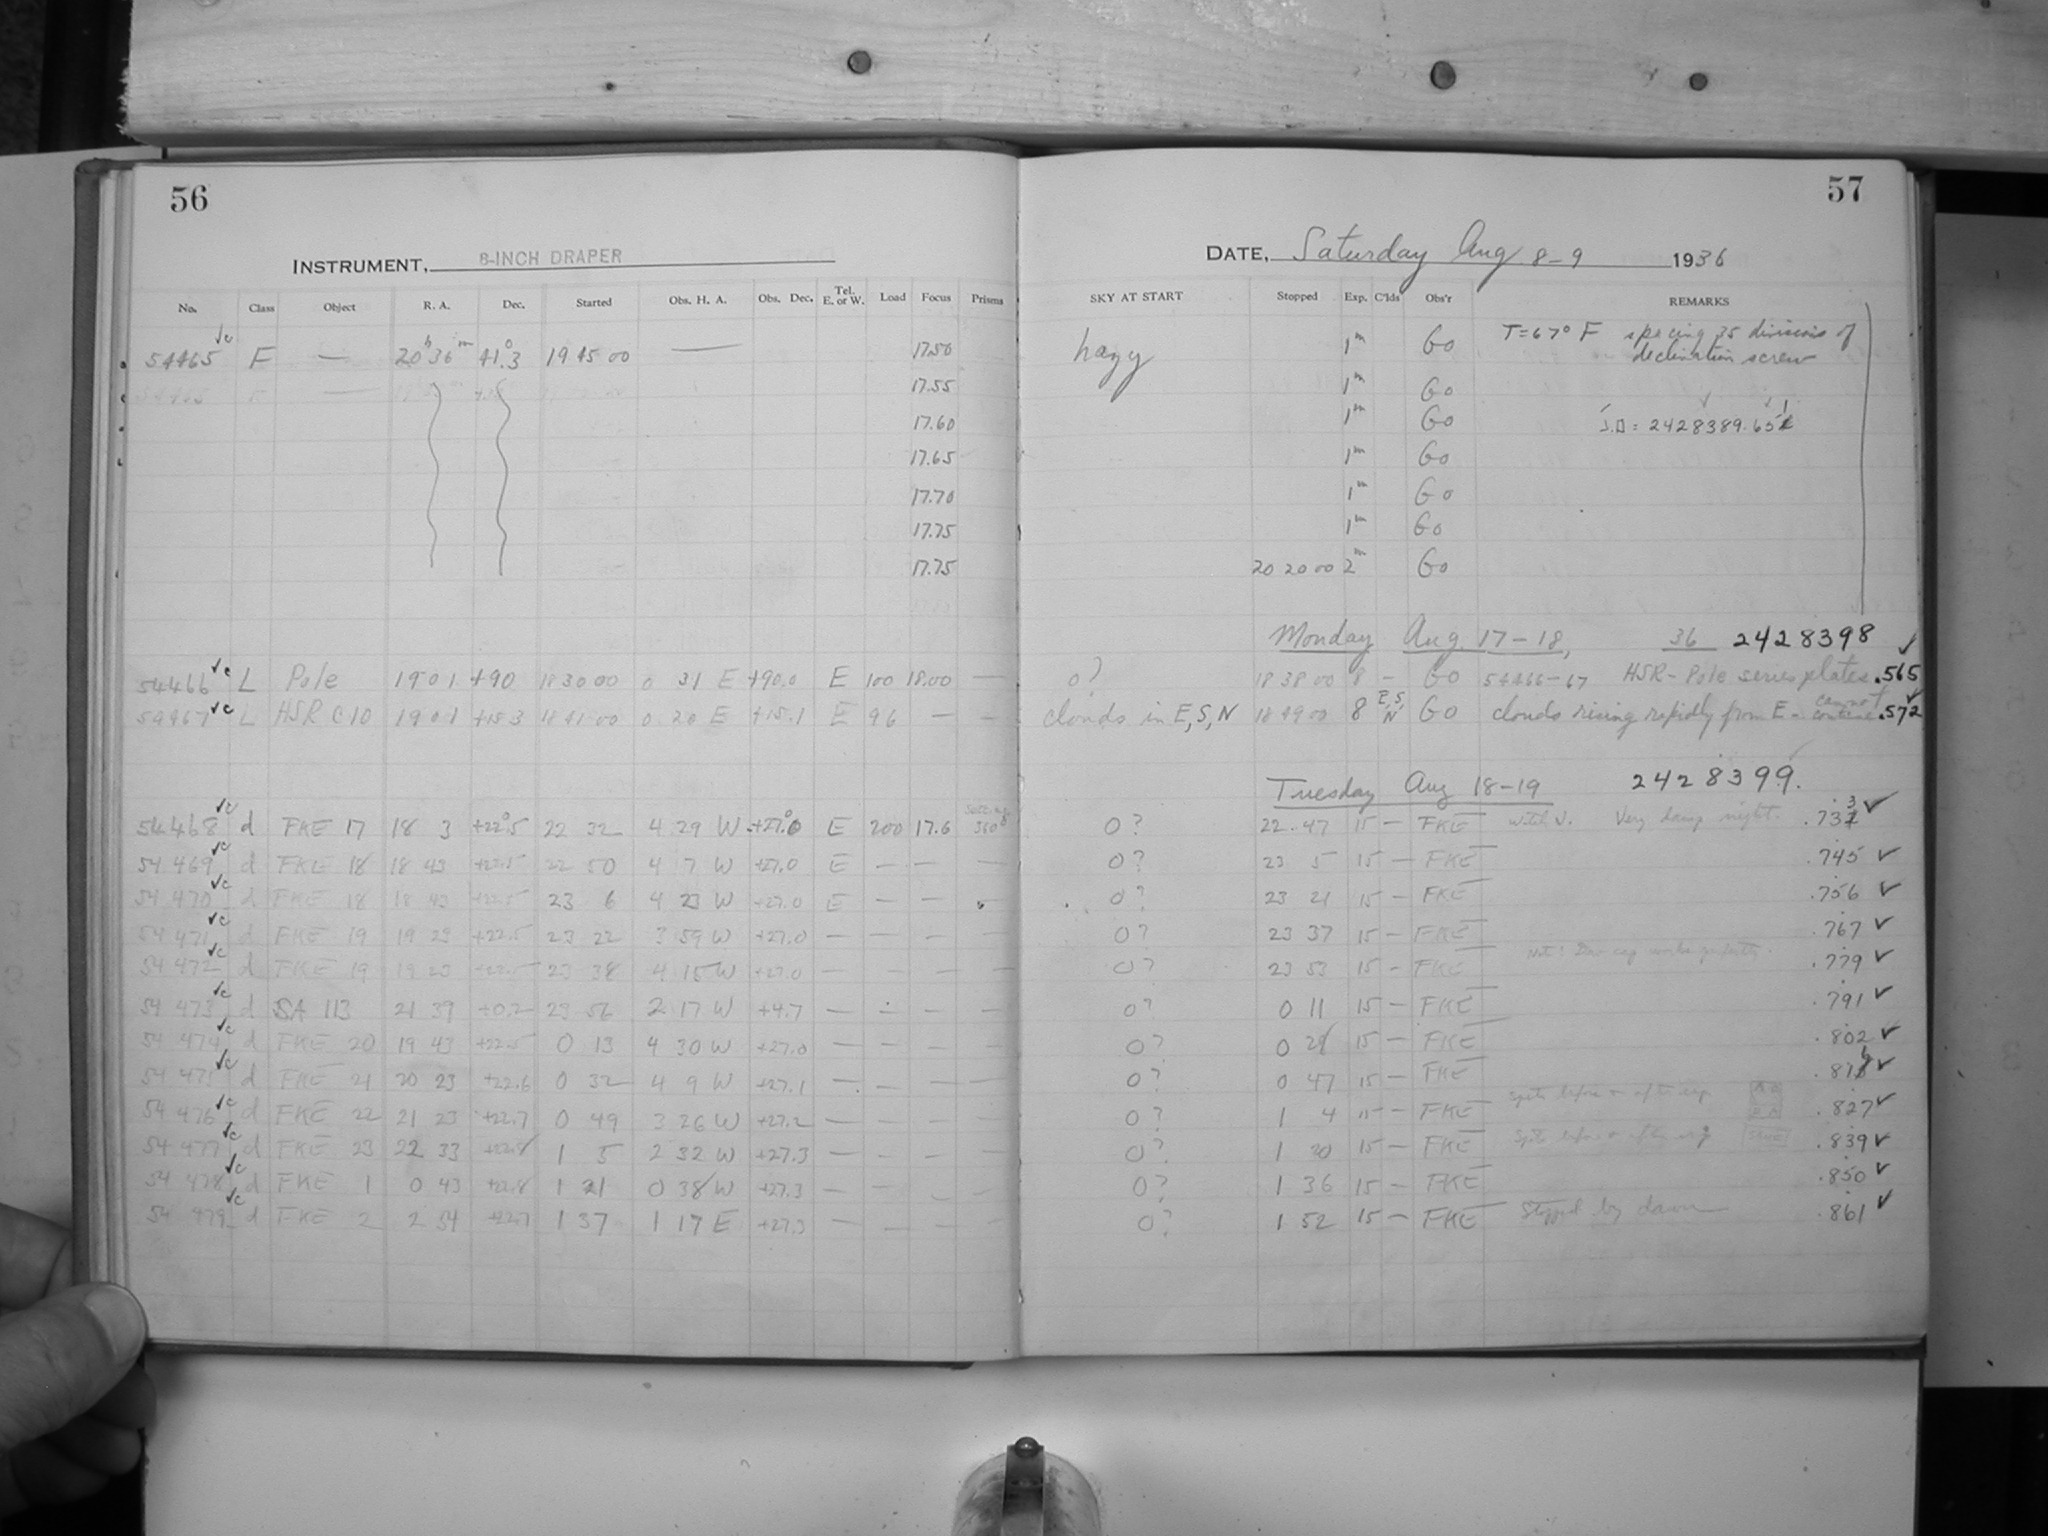 56
INSTRUMENT, 8-INCH DRAPER
No. Class Object R. A. Dec. Started Obs. H. A. Obs. Dec. Tel. E. or W. Load Focus Prisms
54465 F — 20h 36m 41°.3 19 45 00 — 17.50
17.55
17.60
17.65
17.70
17.75
17.75
54466 L Pole 19 01 +90 18 30 00 0 31 E +90.0 E 100 18.00 —
54467 L HSR C10 19 01 +15.3 18 41 00 0 20 E +15.1 E 96 — —
54468 d FKE 17 18 3 +22°.5 22 32 4 29 W +27°.0 E 200 17.6
54 469 d FKE 18 18 43 +22.5 22 50 4 7 W +27.0 E — — —
54 470 d FKE 18 18 43 +22.5 23 6 4 23 W +27.0 E — — —
54 471 d FKE 19 19 23 +22.5 23 22 3 59 W +27.0 — — — —
54 472 d FKE 19 19 23 +22.5 23 38 4 15 W +27.0 — — — —
54 473 d SA 113 21 39 +0.2 23 56 2 17 W +4.7 — — — —
54 474 d FKE 20 19 43 +22.5 0 13 4 30 W +27.0 — — — —
54 475 d FKE 21 20 23 +22.6 0 32 4 9 W +27.1 — — — —
54 476 d FKE 22 21 23 +22.7 0 49 3 26 W +27.2 — — — —
54 477 d FKE 23 22 33 +22.8 1 5 2 32 W +27.3 — — — —
54 478 d FKE 1 0 43 +22.8 1 21 0 38 W +27.3 — — — —
54 479 d FKE 2 2 54 +22.7 1 37 1 17 E +27.3 — — — —
57
DATE, Saturday Aug 8-9 1936
SKY AT START Stopped Exp. C'lds Obs'r REMARKS
hazy 1m Go T=67° F spacing 35 divisions of
declination screw
1m Go
1m Go J.D = 2428389.651
1m Go
1m Go
1m Go
20 20 00 2m Go
Monday Aug. 17-18, 36 2428398
0? 18 38 00 8 - Go 54466-67 HSR - Pole series plates .565
clouds in E, S, N 18 49 00 8 E, S, N Go clouds rising rapidly from E - cannot continue .572
Tuesday Aug 18-19 2428399.
0? 22 47 15 — FKE with J. Very damp night. .733
0? 23 5 15 — FKE .745
0? 23 21 15 — FKE .756
0? 23 37 15 — FKE .767
0? 23 53 15 - FKE Note: Dew cap works perfectly. .779
0? 0 11 15 — FKE .791
0? 0 28 15 — FKE .802
0? 0 47 15 — FKE .816
0? 1 4 15 — FKE Spots before & after exp .827
0? 1 20 15 — FKE Spots before & after exp .839
0? 1 36 15 — FKE .850
0? 1 52 15 — FKE Stopped by dawn .861